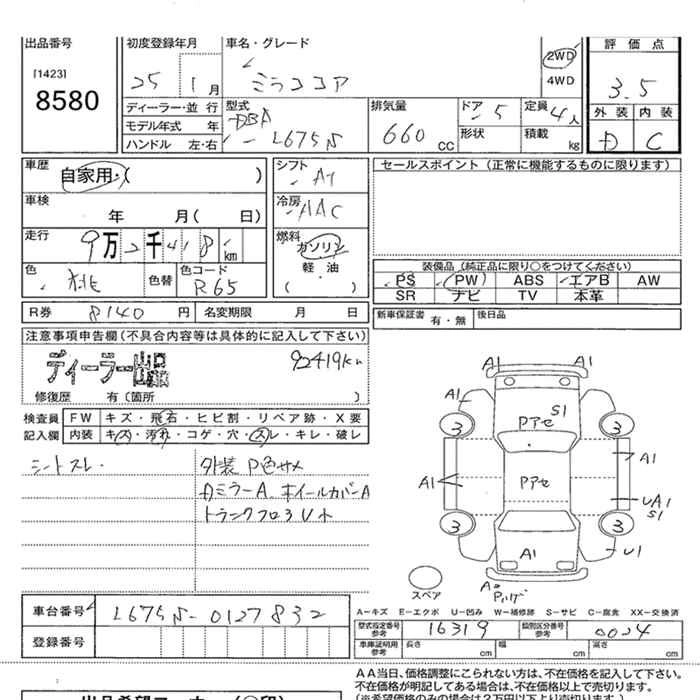 出品番号 初度登録年月 車名・グレード 2WD 評価点
[1423]
8580
25 1月 ミラココア 4WD 3.5
ディーラー・並行 型式 排気量 ドア 5 定員 4人 外装 内装
モデル年式 年 DBA
ハンドル 左・右 L675S 660 CC 形状 積載 kg D C
車歴 自家用・( ) シフト AT セールスポイント(正常に機能するものに限ります)
車検 年 月( 日) 冷房 AAC
走行 9万2千418km 燃料 ガソリン
軽・油
( )
装備品(純正品に限り○をつけてください)
色 桃 色替 色コード R65 PS PW ABS エアB AW
SR ナビ TV 本革
R券 8140円 名変期限 月 日 新車保証書 有・無 後日品
注意事項申告欄(不具合内容等は具体的に記入して下さい)
ディーラー出品 92419km
修復歴 有〔箇所 〕
検査員 FW キズ・飛石・ヒビ割・リペア跡・X要
記入欄 内装 キズ・汚れ・コゲ・穴・スレ・キレ・破レ
シートスレ. 外装 P色サメ
ドアミラーA ホイールカバーA
A1 A1
A1 S1
Pアセ
3 3
A1 Pアセ A1
UA1
S1
3 3
A1 U1
スペア
車台番号 L675S-0127832
登録番号
A-キズ E-エクボ U-凹み W-補修跡 S-サビ C-腐食 XX-交換済
型式指定番号 参考 16319 類別区分番号 参考 0024
車庫証明用 参考 長さ cm 幅 cm 高さ cm
AA当日、価格調整にこられない方は、不在価格を記入して下さい。
不在価格が明記してある場合は、不在価格以上で売切ります。